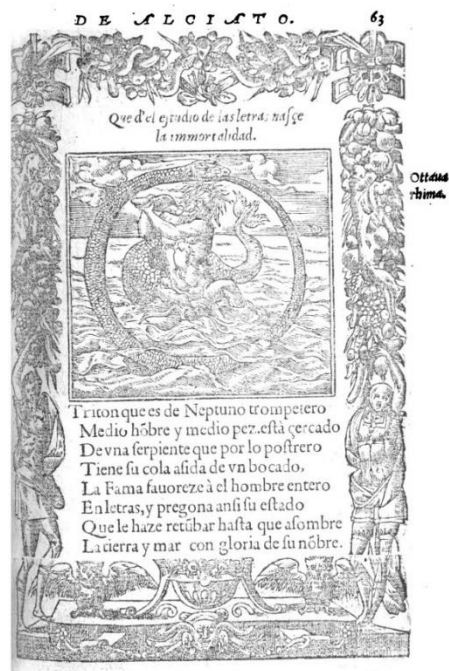 DE ALCIATO.
63
Que d'el estudio de las letras nasçe
la immortalidad.
Ottaua
rhima.
Triton que es de Neptuno trompetero
Medio hõbre y medio pez.està çercado
De vna serpiente que por lo postrero
Tiene su cola asida de vn bocado,
La Fama fauoreze à el hombre entero
En letras, y pregona ansi su estado
Que le haze retũbar hasta que asombre
La tierra y mar con gloria de su nõbre.